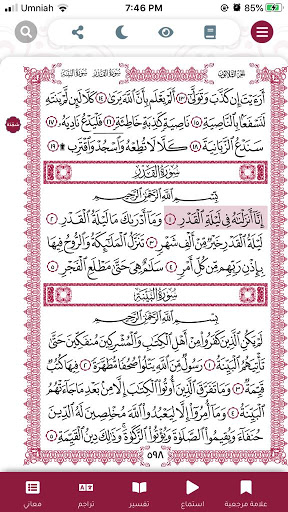 Umniah 7:46 PM 85%
الجزء الثلاثون سورة القدر سورة البينة
أَرَءَيْتَ إِن كَذَّبَ وَتَوَلَّىٰٓ ١٣ أَلَمْ يَعْلَم بِأَنَّ ٱللَّهَ يَرَىٰ ١٤ كَلَّا لَئِن لَّمْ يَنتَهِ
لَنَسْفَعًۢا بِٱلنَّاصِيَةِ ١٥ نَاصِيَةٍ كَٰذِبَةٍ خَاطِئَةٍ ١٦ فَلْيَدْعُ نَادِيَهُۥ ١٧
سَنَدْعُ ٱلزَّبَانِيَةَ ١٨ كَلَّا لَا تُطِعْهُ وَٱسْجُدْ وَٱقْتَرِب ۩ ١٩
سجدة
سُورَةُ ٱلْقَدْرِ
بِسْمِ ٱللَّهِ ٱلرَّحْمَٰنِ ٱلرَّحِيمِ
إِنَّآ أَنزَلْنَٰهُ فِى لَيْلَةِ ٱلْقَدْرِ ١ وَمَآ أَدْرَىٰكَ مَا لَيْلَةُ ٱلْقَدْرِ ٢
لَيْلَةُ ٱلْقَدْرِ خَيْرٌ مِّنْ أَلْفِ شَهْرٍ ٣ تَنَزَّلُ ٱلْمَلَٰٓئِكَةُ وَٱلرُّوحُ فِيهَا
بِإِذْنِ رَبِّهِم مِّن كُلِّ أَمْرٍ ٤ سَلَٰمٌ هِىَ حَتَّىٰ مَطْلَعِ ٱلْفَجْرِ ٥
سُورَةُ ٱلْبَيِّنَةِ
بِسْمِ ٱللَّهِ ٱلرَّحْمَٰنِ ٱلرَّحِيمِ
لَمْ يَكُنِ ٱلَّذِينَ كَفَرُوا۟ مِنْ أَهْلِ ٱلْكِتَٰبِ وَٱلْمُشْرِكِينَ مُنفَكِّينَ حَتَّىٰ
تَأْتِيَهُمُ ٱلْبَيِّنَةُ ١ رَسُولٌ مِّنَ ٱللَّهِ يَتْلُوا۟ صُحُفًا مُّطَهَّرَةً ٢ فِيهَا كُتُبٌ
قَيِّمَةٌ ٣ وَمَا تَفَرَّقَ ٱلَّذِينَ أُوتُوا۟ ٱلْكِتَٰبَ إِلَّا مِنۢ بَعْدِ مَا جَآءَتْهُمُ
ٱلْبَيِّنَةُ ٤ وَمَآ أُمِرُوٓا۟ إِلَّا لِيَعْبُدُوا۟ ٱللَّهَ مُخْلِصِينَ لَهُ ٱلدِّينَ
حُنَفَآءَ وَيُقِيمُوا۟ ٱلصَّلَوٰةَ وَيُؤْتُوا۟ ٱلزَّكَوٰةَ وَذَٰلِكَ دِينُ ٱلْقَيِّمَةِ ٥
٥٩٨
علامة مرجعية استماع تفسير تراجم معاني